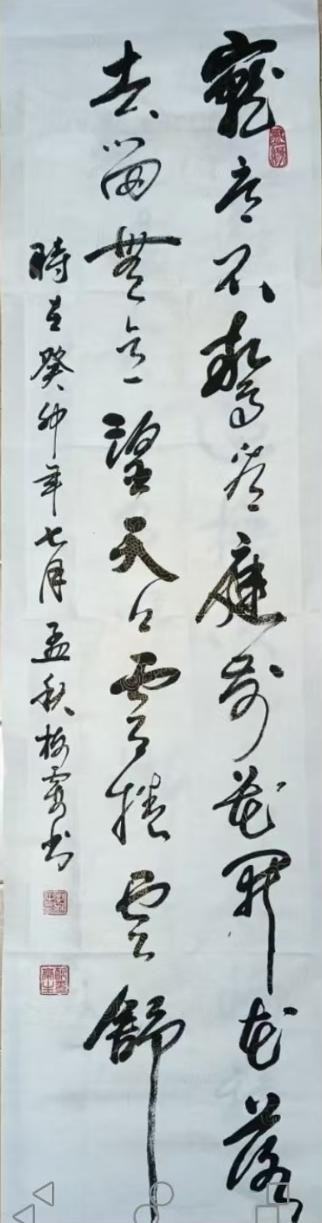 寵辱不驚看庭前花開花落
去留無意望天上雲捲雲舒
時在癸卯年七月孟秋梅书